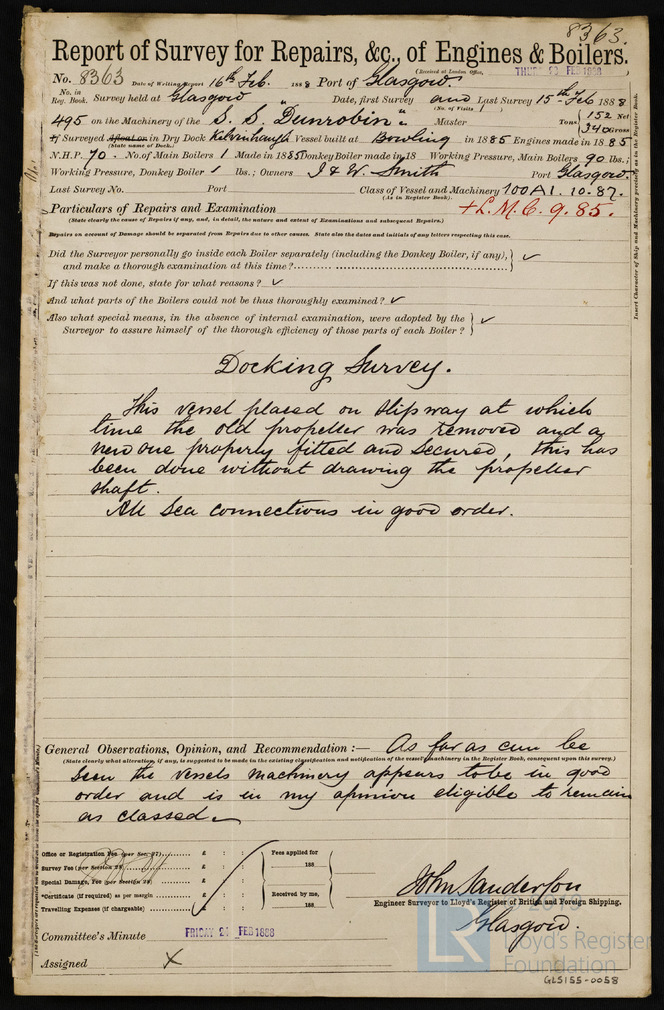 8363.
Report of Survey for Repairs, &c., of Engines & Boilers.
(Received at London Office, THURS 23 FEB 1888
No. 8363 Date of Writing Report 16th Feb. 1888 Port of Glasgow.
No. in Reg. Book. Survey held at Glasgow Date, first Survey and Last Survey 15th Feb 1888
(No. of Visits 1)
495 on the Machinery of the S. S. "Dunrobin" Master Tons 152 Net 340 Gross
If Surveyed Afloat or in Dry Dock Kelvinhaugh Vessel built at Bowling in 1885 Engines made in 1885
(State name of Dock.)
N.H.P. 70. No. of Main Boilers 1 Made in 1885 Donkey Boiler made in 18 Working Pressure, Main Boilers 90 lbs.;
Working Pressure, Donkey Boiler lbs.; Owners J & W. Smith Port Glasgow
Last Survey No. Port Class of Vessel and Machinery 100A1. 10.87.
(As in Register Book).
Particulars of Repairs and Examination + L.M.C. 9.85.
(State clearly the cause of Repairs if any, and, in detail, the nature and extent of Examinations and subsequent Repairs.)
Repairs on account of Damage should be separated from Repairs due to other causes. State also the dates and initials of any letters respecting this case.
Did the Surveyor personally go inside each Boiler separately (including the Donkey Boiler, if any), ✓
and make a thorough examination at this time?
If this was not done, state for what reasons? ✓
And what parts of the Boilers could not be thus thoroughly examined? ✓
Also what special means, in the absence of internal examination, were adopted by the ✓
Surveyor to assure himself of the thorough efficiency of those parts of each Boiler?
Insert Character of Ship and Machinery precisely as in the Register Book.
Docking Survey.
This vessel placed on slipway at which
time the old propeller was removed and a
new one properly fitted and secured, this has
been done without drawing the propeller
shaft.
All sea connections in good order.
General Observations, Opinion, and Recommendation:— As far as can be
(State clearly what alteration, if any, is suggested to be made in the existing classification and notification of the vessel's machinery in the Register Book, consequent upon this survey.)
seen the vessels machinery appears to be in good
order and is in my opinion eligible to remain
as classed.
Office or Registration Fee (per Sec. 27) £ : :
Survey Fee (per Section 28) £ : :
Special Damage, Fee (per Section 28) £ : :
*Certificate (if required) as per margin £ : :
Travelling Expenses (if chargeable) £ : :
Fees applied for
188
Received by me,
188
John Sanderson
Engineer Surveyor to Lloyd's Register of British and Foreign Shipping.
Glasgow.
Committee's Minute FRIDAY 24 FEB 1888
Assigned X
LR
Lloyd's Register
Foundation
GLS155-0058